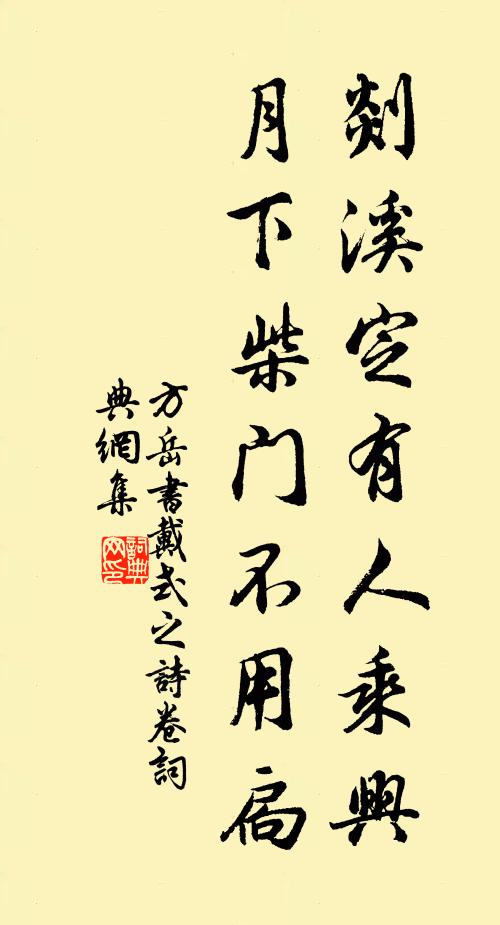 剡溪定有人乘興
月下柴門不用扃
方岳書戴式之詩卷詞
典網集
詞典網印